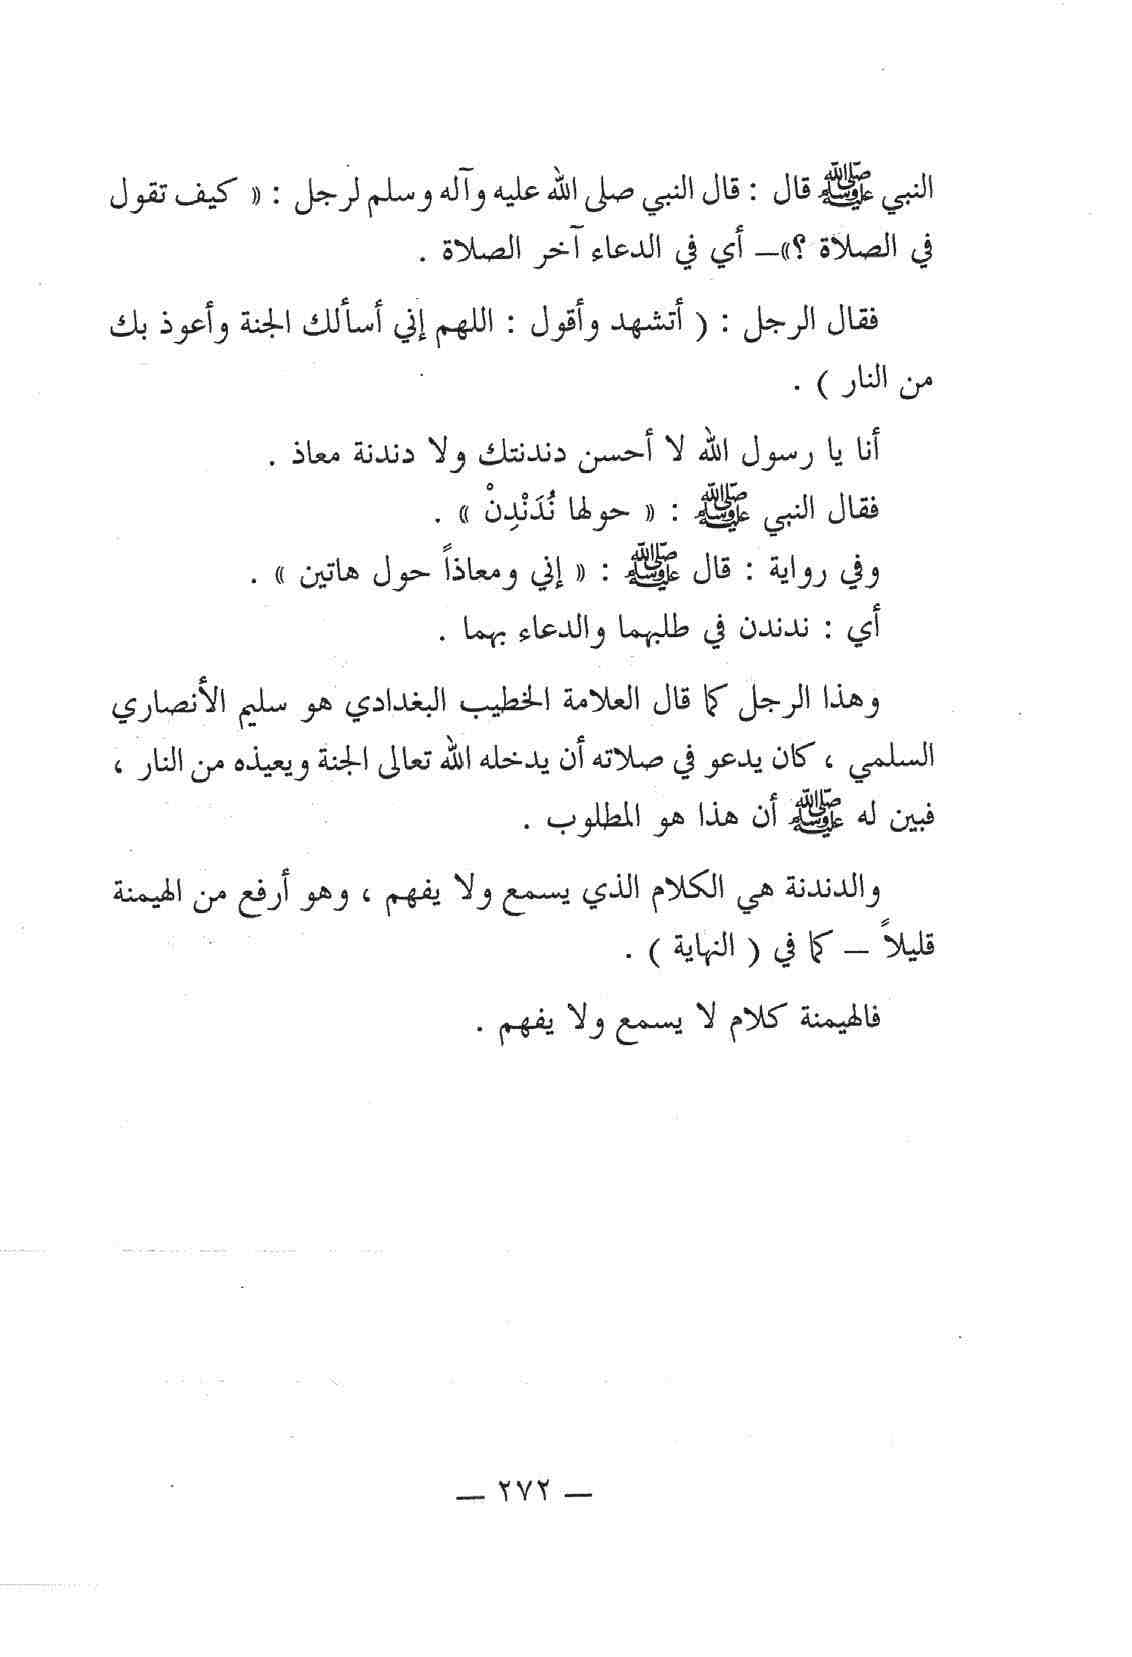 النبي ﷺ قال : قال النبي صلى الله عليه وآله وسلم لرجل : « كيف تقول
في الصلاة ؟»ــ أي في الدعاء آخر الصلاة .
فقال الرجل : ( أتشهد وأقول : اللهم إني أسألك الجنة وأعوذ بك
من النار ) .
أنا يا رسول الله لا أحسن دندنتك ولا دندنة معاذ .
فقال النبي ﷺ : « حولها نُدَنْدِنْ » .
وفي رواية : قال ﷺ : « إني ومعاذاً حول هاتين » .
أي : ندندن في طلبهما والدعاء بهما .
وهذا الرجل كما قال العلامة الخطيب البغدادي هو سليم الأنصاري
السلمي ، كان يدعو في صلاته أن يدخله الله تعالى الجنة ويعيذه من النار ،
فبين له ﷺ أن هذا هو المطلوب .
والدندنة هي الكلام الذي يسمع ولا يفهم ، وهو أرفع من الهيمنة
قليلاً ــ كما في ( النهاية ) .
فالهيمنة كلام لا يسمع ولا يفهم .
ــ ٢٧٢ ــ